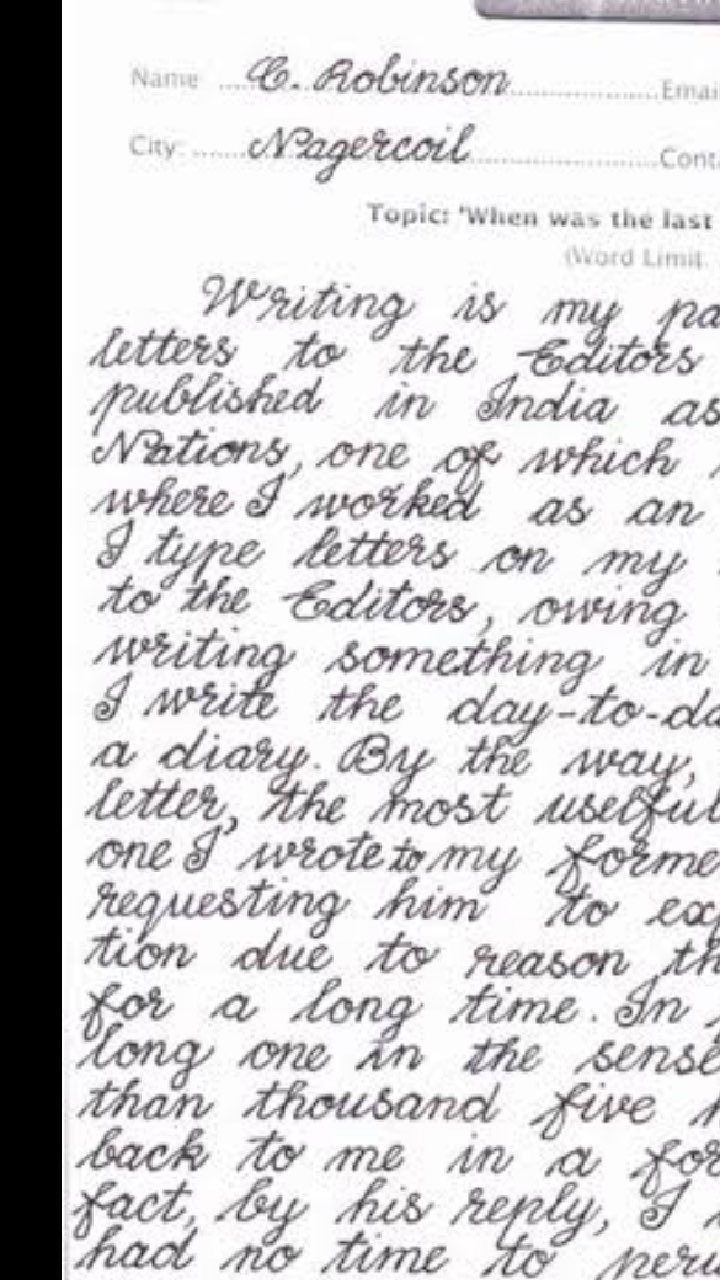 Name C. Robinson Emai
City: Nagercoil Conta
Topic: 'When was the last
(Word Limit.
Writing is my pa
letters to the Editors
published in India as
Nations, one of which
where I worked as an
I type letters on my
to the Editors, owing
writing something in
I write the day-to-da
a diary. By the way,
letter, the most uselful
one I wrote to my forme
requesting him to exp
tion due to reason th
for a long time. In
long one in the sense
than thousand five h
back to me in a for
fact, by his reply, I
had no time to peru